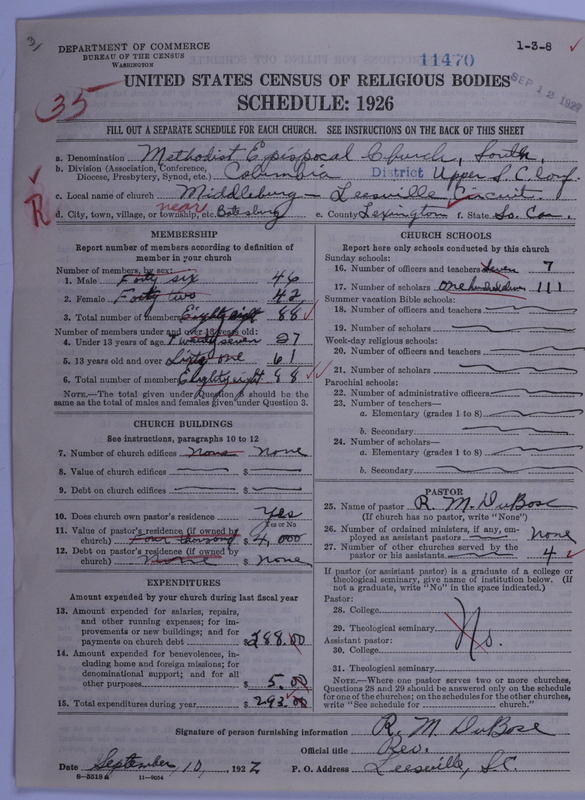 3/
DEPARTMENT OF COMMERCE
BUREAU OF THE CENSUS
WASHINGTON
11470
1-3-8
SEP 12 1927
35
UNITED STATES CENSUS OF RELIGIOUS BODIES
SCHEDULE: 1926
FILL OUT A SEPARATE SCHEDULE FOR EACH CHURCH. SEE INSTRUCTIONS ON THE BACK OF THIS SHEET
a. Denomination Methodist Episcopal Church, South,
b. Division (Association, Conference, Diocese, Presbytery, Synod, etc.) Columbia District Upper S.C. Conf.
c. Local name of church Middleburg - Leesville Circuit
R
d. City, town, village, or township, etc. near Batesburg e. County Lexington f. State So. Car.
MEMBERSHIP
Report number of members according to definition of member in your church
Number of members, by sex:
1. Male Forty six 46
2. Female Forty two 42
3. Total number of members Eighty eight 88
Number of members under and over 13 years old:
4. Under 13 years of age Twenty seven 27
5. 13 years old and over Sixty one 61
6. Total number of members Eighty eight 88
NOTE.—The total given under Question 6 should be the
same as the total of males and females given under Question 3.
CHURCH BUILDINGS
See instructions, paragraphs 10 to 12
7. Number of church edifices None None
8. Value of church edifices $
9. Debt on church edifices $
10. Does church own pastor's residence Yes
Yes or No
11. Value of pastor's residence (if owned by
church) Four thousand $ 4,000
12. Debt on pastor's residence (if owned by
church) None $ None
EXPENDITURES
Amount expended by your church during last fiscal year
13. Amount expended for salaries, repairs,
and other running expenses; for im-
provements or new buildings; and for
payments on church debt $ 288.00
14. Amount expended for benevolences, in-
cluding home and foreign missions; for
denominational support; and for all
other purposes $ 5.00
15. Total expenditures during year $ 293.00
CHURCH SCHOOLS
Report here only schools conducted by this church
Sunday schools:
16. Number of officers and teachers Seven 7
17. Number of scholars One hundred eleven 111
Summer vacation Bible schools:
18. Number of officers and teachers
19. Number of scholars
Week-day religious schools:
20. Number of officers and teachers
21. Number of scholars
Parochial schools:
22. Number of administrative officers
23. Number of teachers—
a. Elementary (grades 1 to 8)
b. Secondary
24. Number of scholars—
a. Elementary (grades 1 to 8)
b. Secondary
PASTOR
25. Name of pastor R. M. DuBose
(If church has no pastor, write "None")
26. Number of ordained ministers, if any, em-
ployed as assistant pastors None
27. Number of other churches served by the
pastor or his assistants 4
If pastor (or assistant pastor) is a graduate of a college or
theological seminary, give name of institution below. (If
not a graduate, write "No" in the space indicated.)
Pastor:
28. College
29. Theological seminary No.
Assistant pastor:
30. College
31. Theological seminary
NOTE.—Where one pastor serves two or more churches,
Questions 28 and 29 should be answered only on the schedule
for one of the churches; on the schedules for the other churches,
write "See schedule for church."
Signature of person furnishing information R. M. DuBose
Official title Rev.
Date September 10, 1927 P. O. Address Leesville, S.C.
8-5518a 11-9054